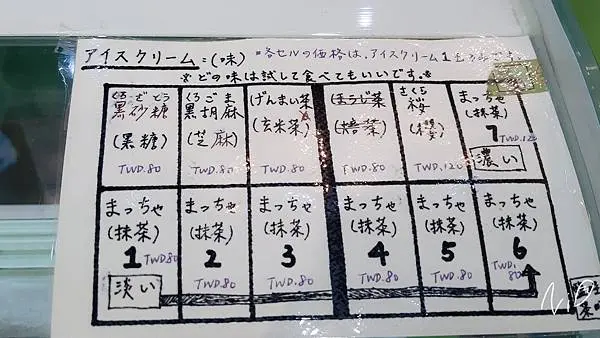 アイスクリーム:(味) *各セルの価格は、アイスクリーム1
※どの味は試して食べてもいいです。※
くろざとう
黒砂糖
(黒糖)
TWD.80
くろごま
黒胡麻
(芝麻)
TWD.80
げんまい茶
(玄米茶)
TWD.80
ほうじ茶
(焙茶)
TWD.80
さくら
桜
TWD.120
まっちゃ
(抹茶)
7 TWD.120
濃い
まっちゃ
(抹茶)
1 TWD.80
淡い
まっちゃ
(抹茶)
2
TWD.80
まっちゃ
(抹茶)
3
TWD.80
まっちゃ
(抹茶)
4
TWD.80
まっちゃ
(抹茶)
5
TWD.80
まっちゃ
(抹茶)
6
TWD.
80